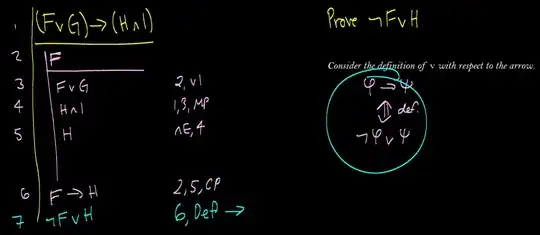 1 (F∨G) → (H∧I)
2 F
3 F∨G 2, ∨I
4 H∧I 1, 3, MP
5 H ∧E, 4
6 F → H 2, 5, CP
7 ¬F∨H 6, Def →
Prove ¬F∨H
Consider the definition of ∨ with respect to the arrow.
φ → ψ
⇕ def.
¬φ ∨ ψ